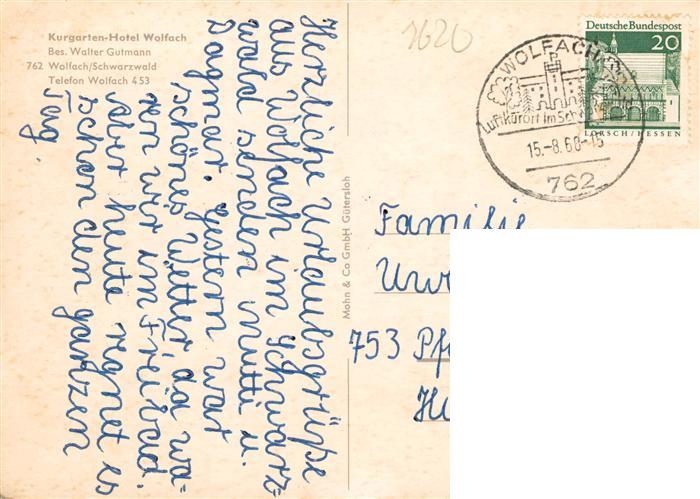 Kurgarten-Hotel Wolfach
Bes. Walter Gutmann
762 Wolfach/Schwarzwald
Telefon Wolfach 453
Herrliche Urlaubsgrüße
aus Wolfach im Schwarz-
wald senden Mutti u.
Dagmar. Gestern war
schönes Wetter, da wa-
ren wir im Freibad.
Aber heute regnet es
schon den ganzen
Tag.
Mohn & Co GmbH Gütersloh
1620
WOLFACH
Luftkurort im Schw
15.-8.68-15
762
Deutsche Bundespost
20
LORSCH/HESSEN
Familie
Urw
753 Pf